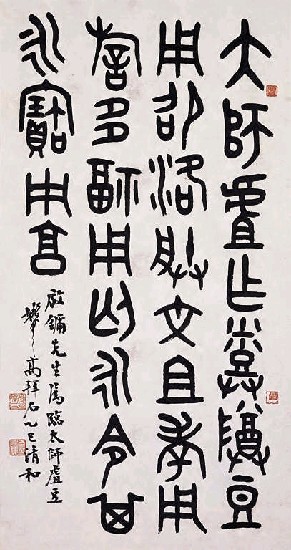 大師虘乍烝尊豆
用卲洛朕文且考用
多福用匄永令其
永寶用亯
啟鏞先生屬臨大師虘豆
高拜石乙巳清和